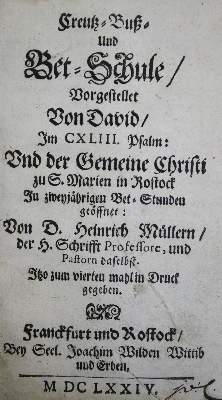 Creutz-Buß-
Und
Bet-Schule/
Vorgestellet
Von David/
Im CXLIII. Psalm:
Und der Gemeine Christi
zu S. Marien in Rostock
In zweyjährigen Bet-Stunden
geöffnet:
Von D. Heinrich Müllern/
der H. Schrifft Professore, und
Pastorn daselbst.
Itzo zum vierten mahl in Druck
gegeben.
Franckfurt und Rostock/
Bey Seel. Joachim Wilden Wittib
und Erben.
M DC LXXIV.